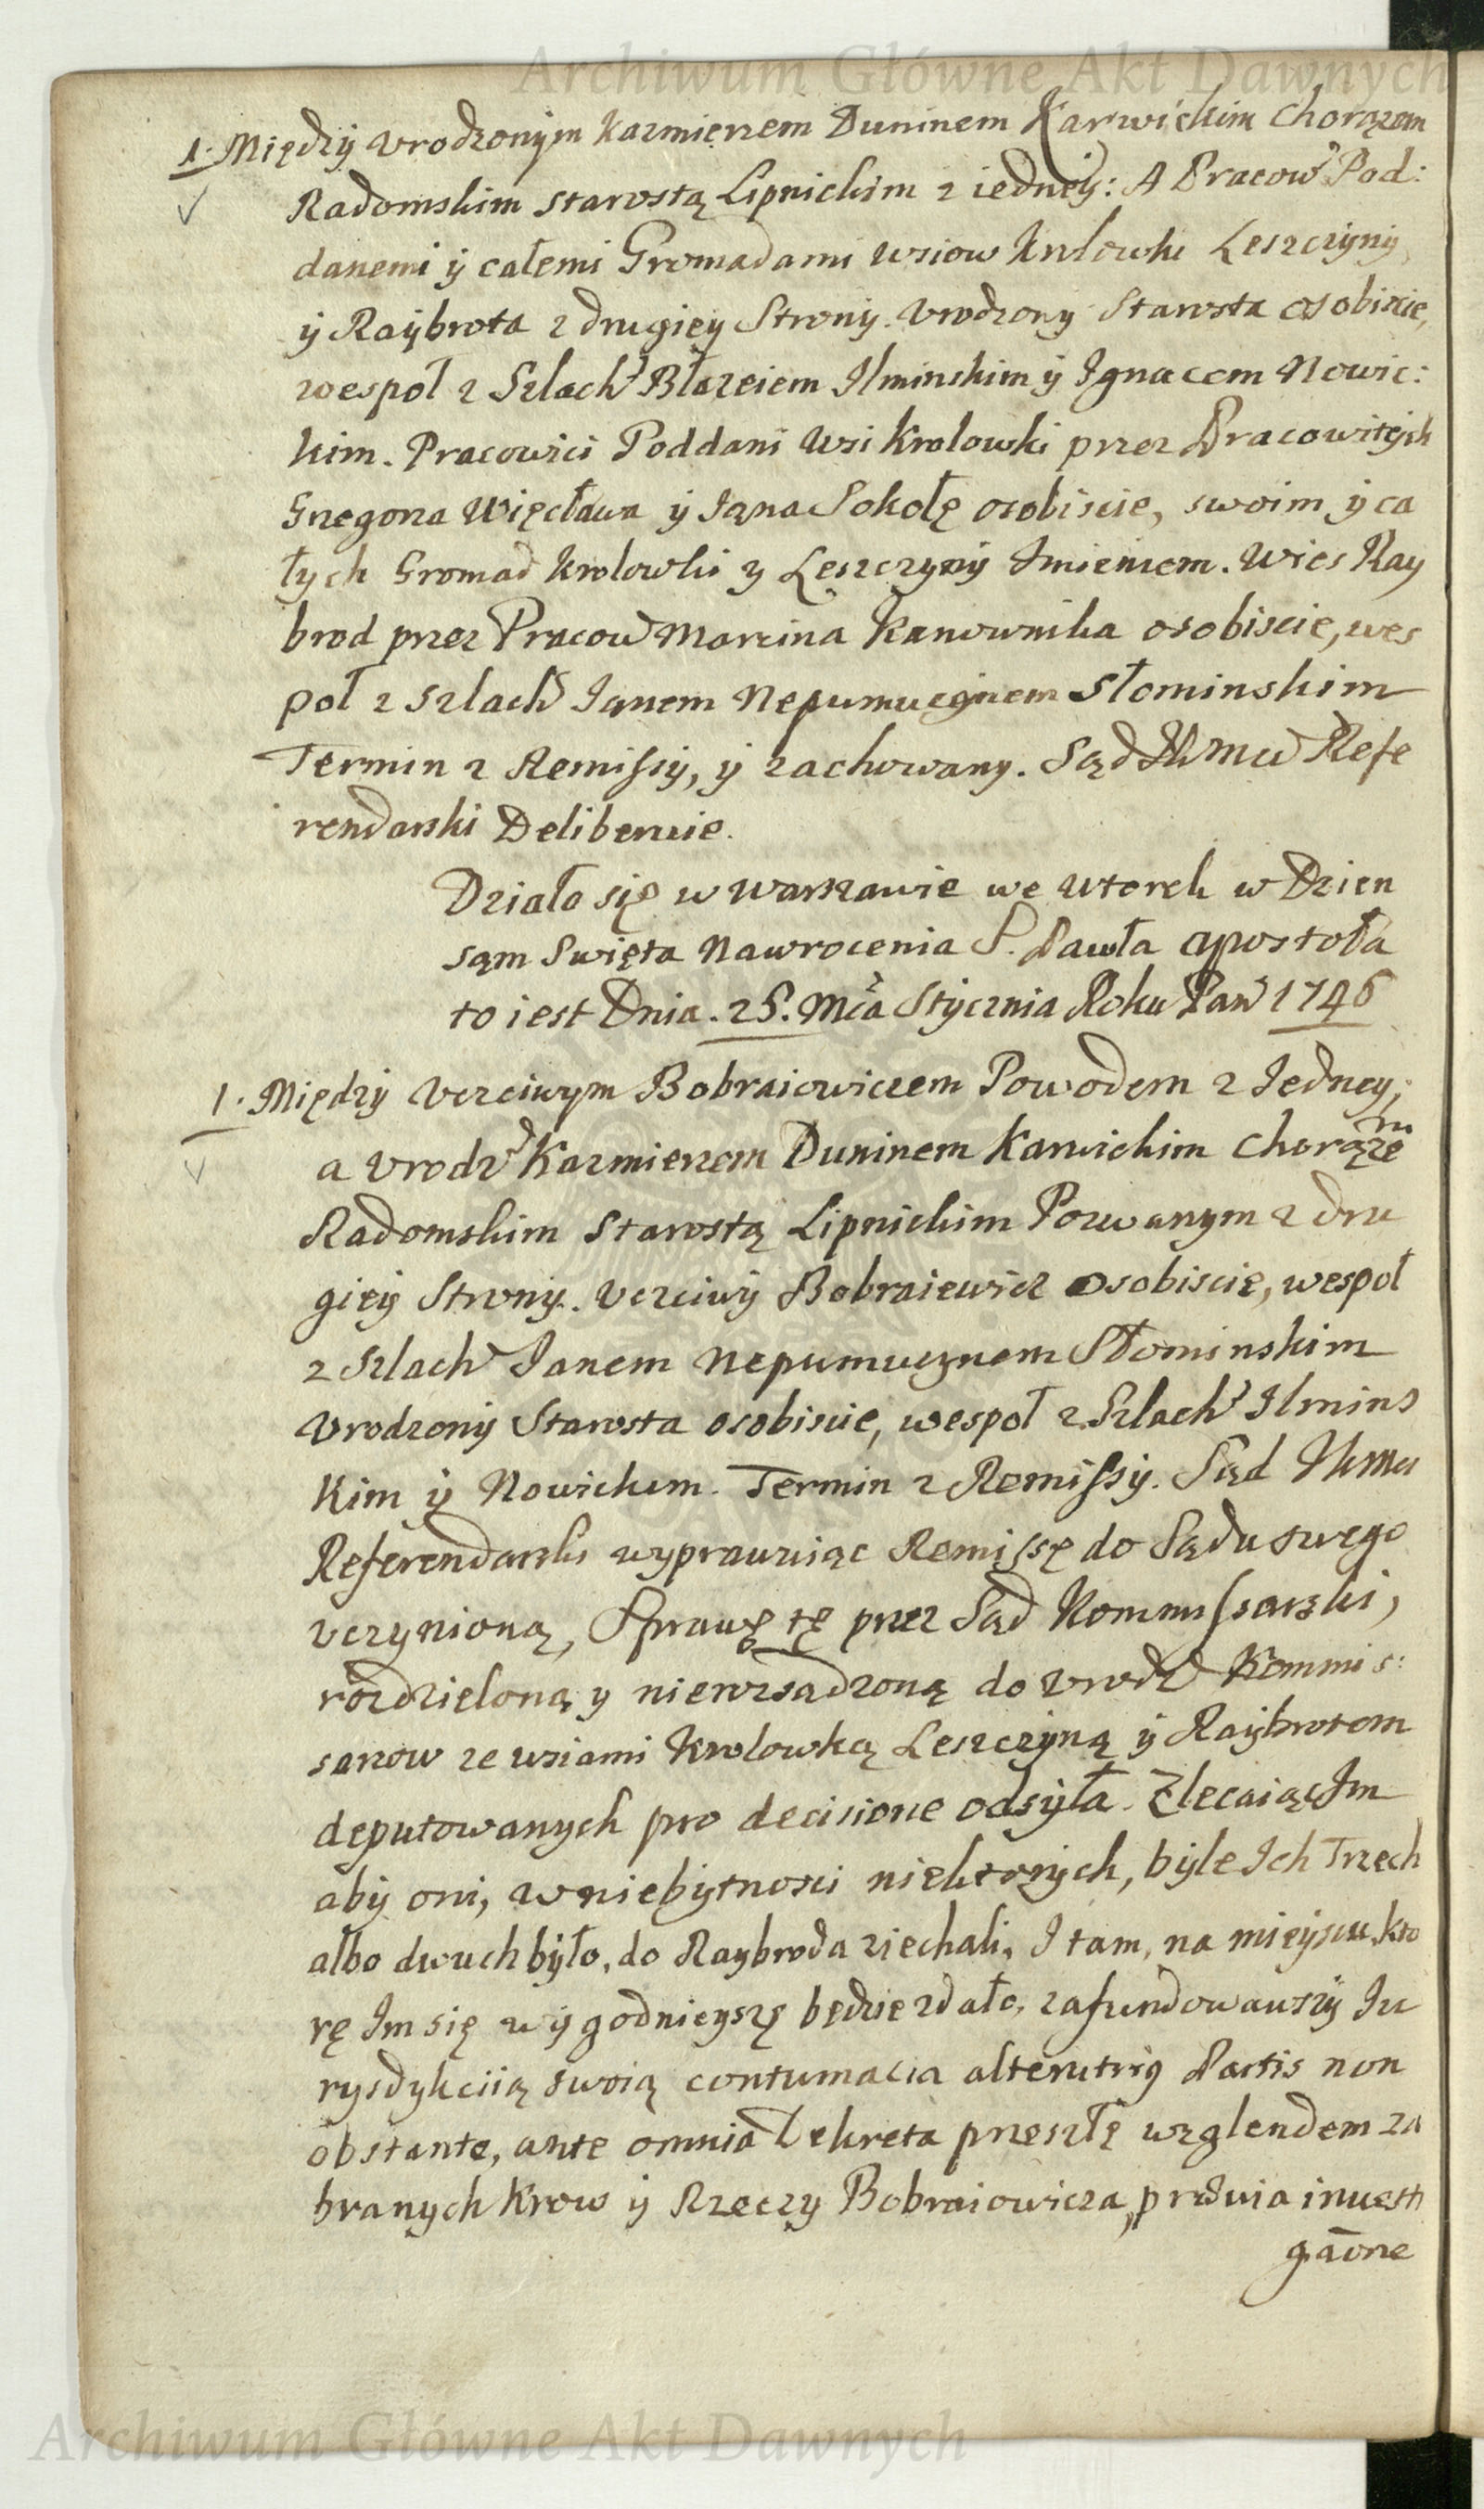 Archiwum Główne Akt Dawnych
1. Między Vrodzonym Kazmierzem Duninem Karwickim Chorązem
Radomskim Starostą Lipnickim z iedney: A Pracow Pod:
danemi ÿ całemi Gromadami Wsiow Krolowki Leszczyny
ÿ Raÿbrota z drugiey Strony. Vrodzony Starosta osobiscie,
wespoł z Szlach Błazeiem Ilminskim ÿ Ignacem Nowic:
kim. Pracowici Poddani Wsi Krolowki przez Pracowitych
Grzegorza Więcława ÿ Iana Sokołę osobiscie, swoim ÿ ca
łych Gromad Krolowki y Leszczyny Imieniem. Wies Ray
brod przez Pracow Marcina Kanownika osobiscie, wes
poł z Szlach Ianem Nepumucynem Słominskim
Termin z Remissÿ, ÿ zachowany. Sąd Referen
rendarski Deliberuie.
Działo się w Warszawie we Wtorek w Dzien
sąm Swięta Nawrocenia S. Pawła Apostoła
to iest Dnia. 25. Mca Stycznia Roku Pan 1746
1. Międzÿ Vczciwym Bobraiowiczem Powodem z Iedney;
a Vrodz Kazmierzem Duninem Karwickim Chorązem
Radomskim Starostą Lipnickim Pozwanym z dru
gieÿ Strony. Vczciwÿ Bobraiewicz osobiscie, wespoł
z Szlach Ianem Nepumucynem Słominskim
Vrodzony Starosta osobiscie, wespoł z Szlach Ilmins
kim ÿ Nowickim. Termin z Remissÿ. Sąd
Referendarski wyprawuiąc Remissę do Sądu swego
vczynioną, Sprawę tę przez Sąd Kommissarski,
rozdzieloną y nierozsadzoną do Vrodz Kommis:
sarzow ze wsiami Krolowką Leszczyną ÿ Raÿbrotem
deputowanych pro decisione odsyła. Zlecaiąc Im
abÿ oni, w niebÿtnosci niektorych, bÿle Ich Trzech
albo dwuch bÿło, do Raybroda ziechali, I tam, na mieyscu, kto
rę Im się wÿgodnieyszę będzie zdało, zafundowawszÿ Iu
rysdykciią swoią contumacia alterutrius Partis non
obstante, ante omnia Dekreta przeszłę wzglendem za
branych Krow ÿ Rzeczy Bobraiowicza, prævia inuesti
gaone
Archiwum Główne Akt Dawnych